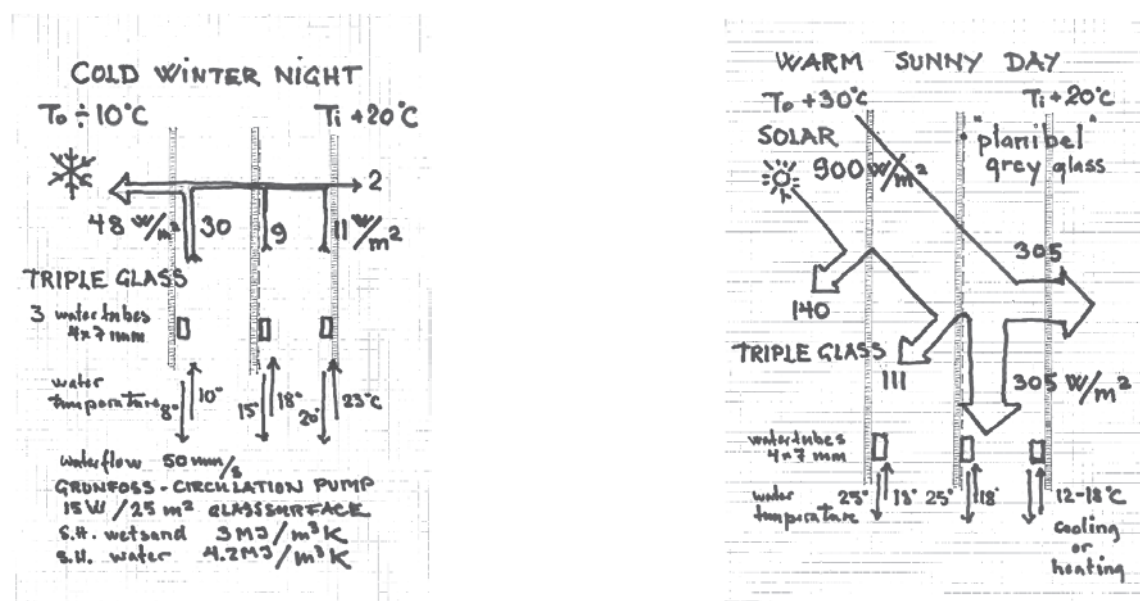 COLD WINTER NIGHT
To ÷10°C
Ti +20°C
2
48 W/m²
30
9
11 W/m²
TRIPLE GLASS
3 watertubes
4x7mm
water
temporature
8°
10°
15°
18°
20°
23°C
waterflow 50mm/s
GRUNFOSS-CIRCULATION PUMP
15W/25m² GLASSSURFACE
S.H. wetsand 3MJ/m³K
S.H. water 4.2MJ/m³K
WARM SUNNY DAY
To +30°C
Ti +20°C
SOLAR
"planibel"
grey glass
900 W/m²
305
140
TRIPLE GLASS
111
305 W/m²
watertubes
4x7mm
water
temporature
25°
18°
25°
18°
12-18°C
cooling
or
heating